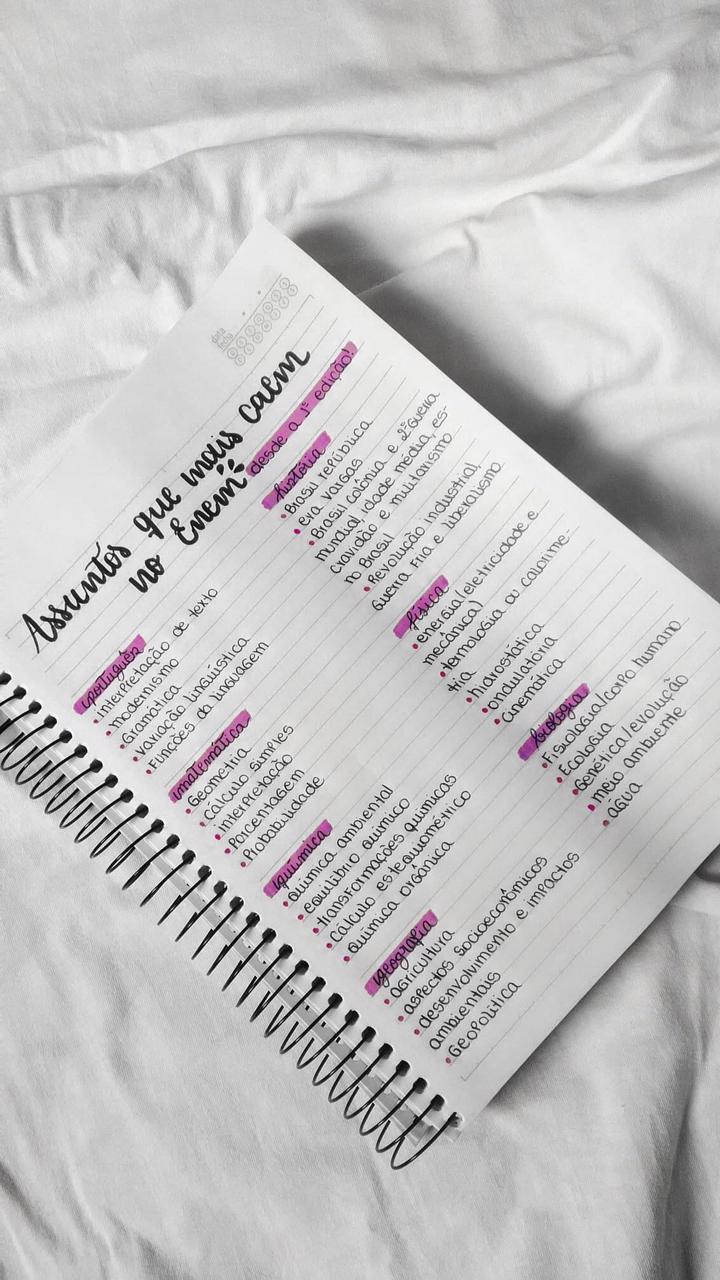 data
fecha
Assuntos que mais caem
no Enem
desde a 1ª edição!
português
• interpretação de texto
• modernismo
• Gramática
• variação linguística
• Funções da linguagem
matemática
• Geometria
• cálculo simples
• interpretação
• Porcentagem
• Probabilidade
química
• química ambiental
• equilíbrio químico
• transformações químicas
• cálculo estequiométrico
• química orgânica
geografia
• agricultura
• aspectos socioeconômicos
• desenvolvimento e impactos
ambientais
• Geopolítica
história
• Brasil república
• era vargas
• Brasil colônia e 2ª Guerra
mundial, idade média, es-
cravidão e militarismo
no Brasil
• Revolução industrial
Guerra Fria e liberalismo
física
• energia (eletricidade e
mecânica)
• termologia ou calorime-
tria
• hidrostática
• ondulatória
• Cinemática
biologia
• Fisiologia/corpo humano
• Ecologia
• Genética/evolução
• meio ambiente
• água